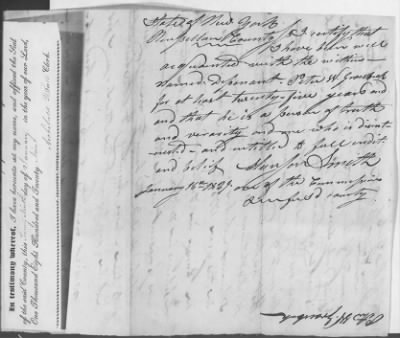 State of New York
Rensselaer County } I certify that
I have been well
acquainted with the within
named deponent Peter W. Groesbeck
for at least twenty five years and
and that he is a person of truth
and veracity and one who is disint-
erested - and entitled to full credit
and belief
January 16th 1829. one of the Commissioners
county
In testimony whereof, I have hereunto set my name, and affixed the Seal
of the said County, this day of January in the year of our Lord,
One Thousand Eight Hundred and Twenty Nine
Archibald Clerk.
Peter W. Groesbeck